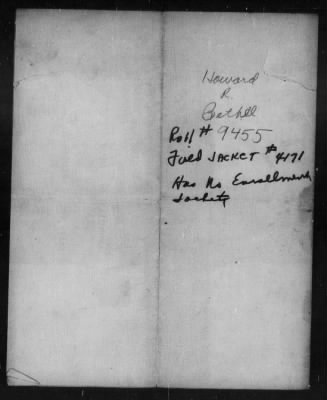 Howard
R.
Bethell
Roll # 9455
Field JACKET # 4171
Has No Enrollment
Jacket